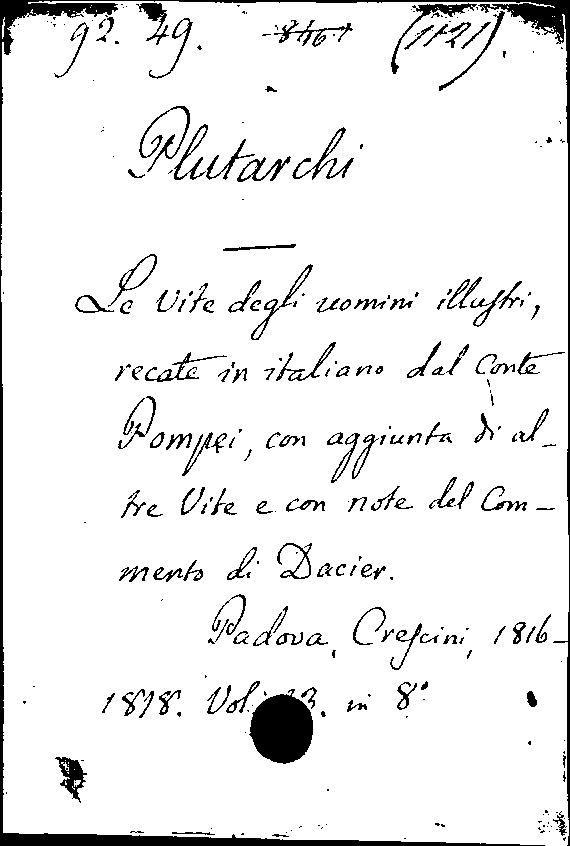 92. 49. (1121).
Plutarchi
Le Vite degli uomini illustri,
recate in italiano dal Conte
Pompei, con aggiunta di al-
tre Vite e con note del Com-
mento di Dacier.
Padova, Crescini, 1816-
1818. Vol. 13. in 8°